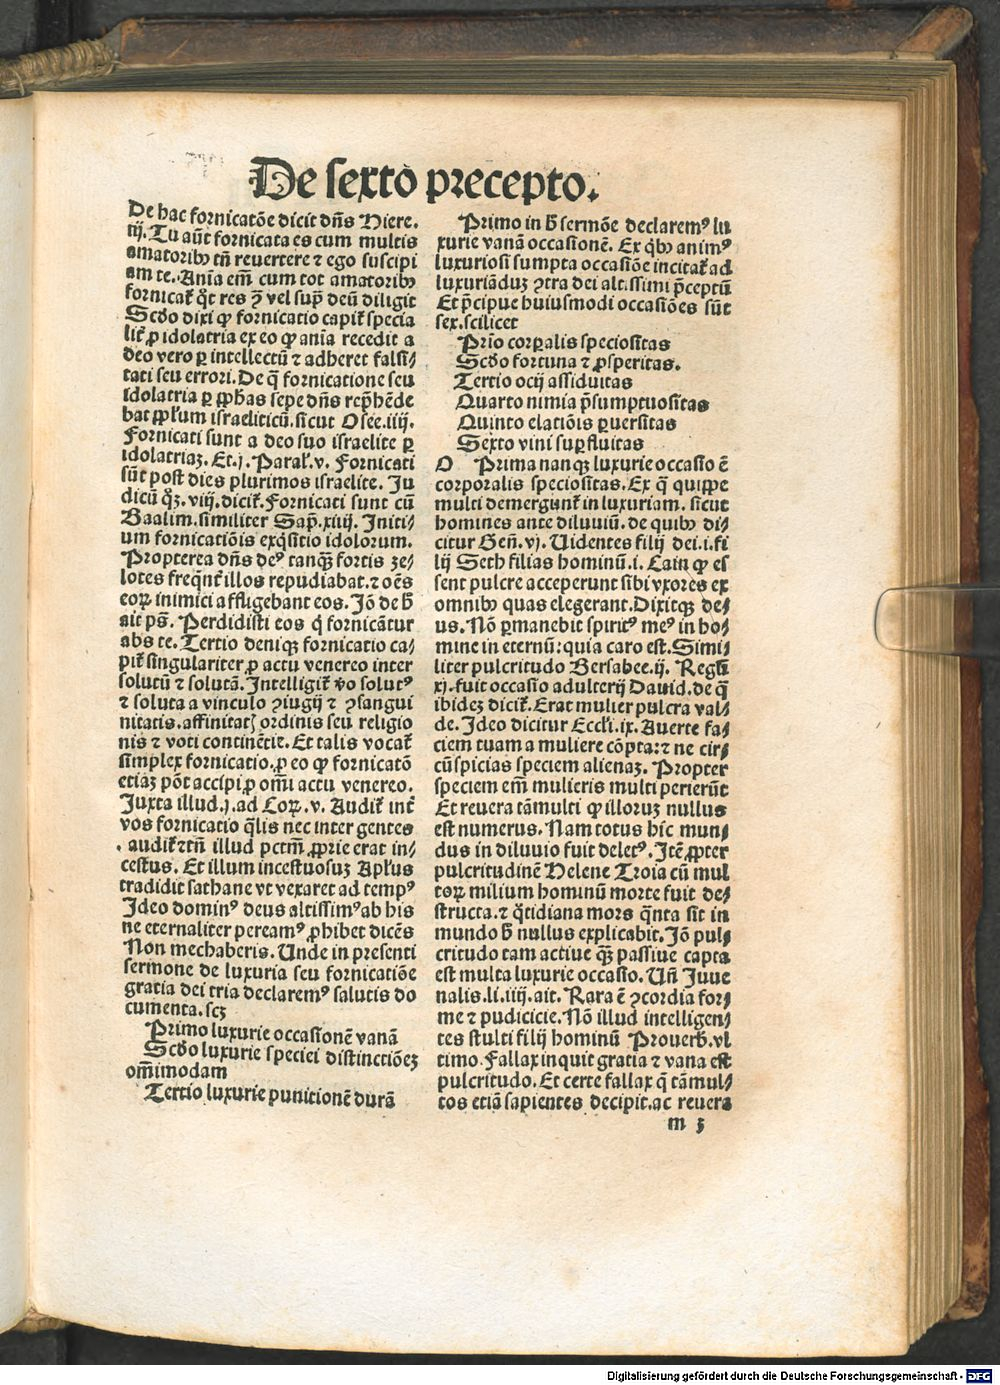 De sexto precepto.
De hac fornicatōe dicit dn̄s Hiere.
iij. Tu aūt fornicata es cum multis
amatoribꝰ tn̄ reuertere ⁊ ego suscipi
am te. Anīa em̄ cum tot amatoribꝰ
fornicat̉ qͦt res ꝯ̄ vel sup̄ deū diligit
Scdo dixi ꝙ fornicatio capit̉ specia
lit̉ ꝓ idolatria ex eo ꝙ anīa recedit a
deo vero ꝑ intellectū ⁊ adheret falsi⸗
tati seu errori. De q̄ fornicatione seu
idolatria ꝑ ꝓphas sepe dn̄s rep̄hēde
bat pp̄lum israeliticū. sicut Osee. iiij.
Fornicati sunt a deo suo israelite ꝑ
idolatriaꝫ. Et. j. Paral̉. v. Fornicati
sūt post dies plurimos israelite. Ju
dicū qͦꝫ. viij. dicit̉. Fornicati sunt cū
Baalim. similiter Sap̄. xiiij. Initi⸗
um fornicatiōis exq̄sitio idolorum.
Propterea dn̄s deꝰ tanqꝫ fortis ze⸗
lotes freq̄nt̉ illos repudiabat. ⁊ oēs
eoꝝ inimici affligebant eos. Jō de h̄
ait ps̄. Perdidisti eos q̇ fornicātur
abs te. Tertio deniqꝫ fornicatio ca⸗
pit̉ singulariter ꝓ actu venereo inter
solutū ⁊ solutā. Intelligit̉ v̄o solutꝰ
⁊ soluta a vinculo ꝯiugij ⁊ ꝯsangui
nitatis. affinitatꝭ ordinis seu religio
nis ⁊ voti continētie. Et talis vocat̉
simplex fornicatio. ꝓ eo ꝙ fornicatō
etiaꝫ pōt accipi ꝓ om̄i actu venereo.
Juxta illud. j. ad Coꝝ. v. Audit̉ int̉
vos fornicatio q̄lis nec inter gentes
audit̉ ⁊ tn̄ illud pctm̄ ꝓprie erat in⸗
cestus. Et illum incestuosuꝫ Apl̉us
tradidit sathane vt vexaret ad tempꝰ
Ideo dominꝰ deus altissimꝰ ab his
ne eternaliter pereamꝰ ꝓhibet dicēs
Non mechaberis. Unde in presenti
sermone de luxuria seu fornicatiōe
gratia dei tria declaremꝰ salutis do
cumenta. scꝫ
Primo luxurie occasionē vanā
Scdo luxurie speciei distinctiōeꝫ
om̄imodam
Tertio luxurie punitionē durā
Primo in h̄ sermōe declaremꝰ lu
xurie vanā occasionē. Ex qͥbꝰ animꝰ
luxuriosi sumpta occasiōe incitat̉ ad
luxuriāduꝫ ꝯtra dei altissimi p̄ceptū
Et p̄cipue huiusmodi occasiōes sūt
sex. scilicet
Prīo corꝑalis speciositas
Scdo fortuna ⁊ ꝓsperitas.
Tertio ocij assiduitas
Quarto nimia p̄sumptuositas
Quinto elatiōis ꝑuersitas
Sexto vini suꝑfluitas
O Prima nanqꝫ luxurie occasio ē
corporalis speciositas. Ex q̄ quippe
multi demergunt̉ in luxuriam. sicut
homines ante diluuiū. de quibꝰ di⸗
citur Gen̄. vj. Uidentes filij dei. i. fi
lij Seth filias hominū. i. Cain ꝙ es
sent pulcre acceperunt sibi vxores ex
omnibꝰ quas elegerant. Dixitqꝫ de⸗
us. Nō ꝑmanebit spiritꝰ meꝰ in ho⸗
mine in eternū: quia caro est. Simi⸗
liter pulcritudo Bersabee. ij. Regꝭ
xj. fuit occasio adulterij Dauid. de q̄
ibideꝫ dicit̉. Erat mulier pulcra val⸗
de. Ideo dicitur Eccl̉i. ix. Auerte fa⸗
ciem tuam a muliere cōpta: ⁊ ne cir⸗
cūspicias speciem alienaꝫ. Propter
speciem em̄ mulieris multi perierūt
Et reuera tāmulti ꝙ illoruꝫ nullus
est numerus. Nam totus hic mun⸗
dus in diluuio fuit deletꝰ. Itē ꝓpter
pulcritudinē Helene Troia cū mul
toꝝ milium hominū morte fuit de⸗
structa. ⁊ qͦtidiana mors q̄nta sit in
mundo h̄ nullus explicabit. Jō pul⸗
critudo tam actiue qꝫ̄ passiue capta
est multa luxurie occasio. Un̄ Juue
nalis. li. iiij. ait. Rara ē ꝯcordia for⸗
me ⁊ pudicicie. Nō illud intelligen⸗
tes stulti filij hominū Prouerb̉. vl
timo. Fallax inquit gratia ⁊ vana est
pulcritudo. Et certe fallax q̄ tāmul⸗
tos etiā sapientes decipit. ac reuera
m 3
Digitalisierung gefördert durch die Deutsche Forschungsgemeinschaft - DFG